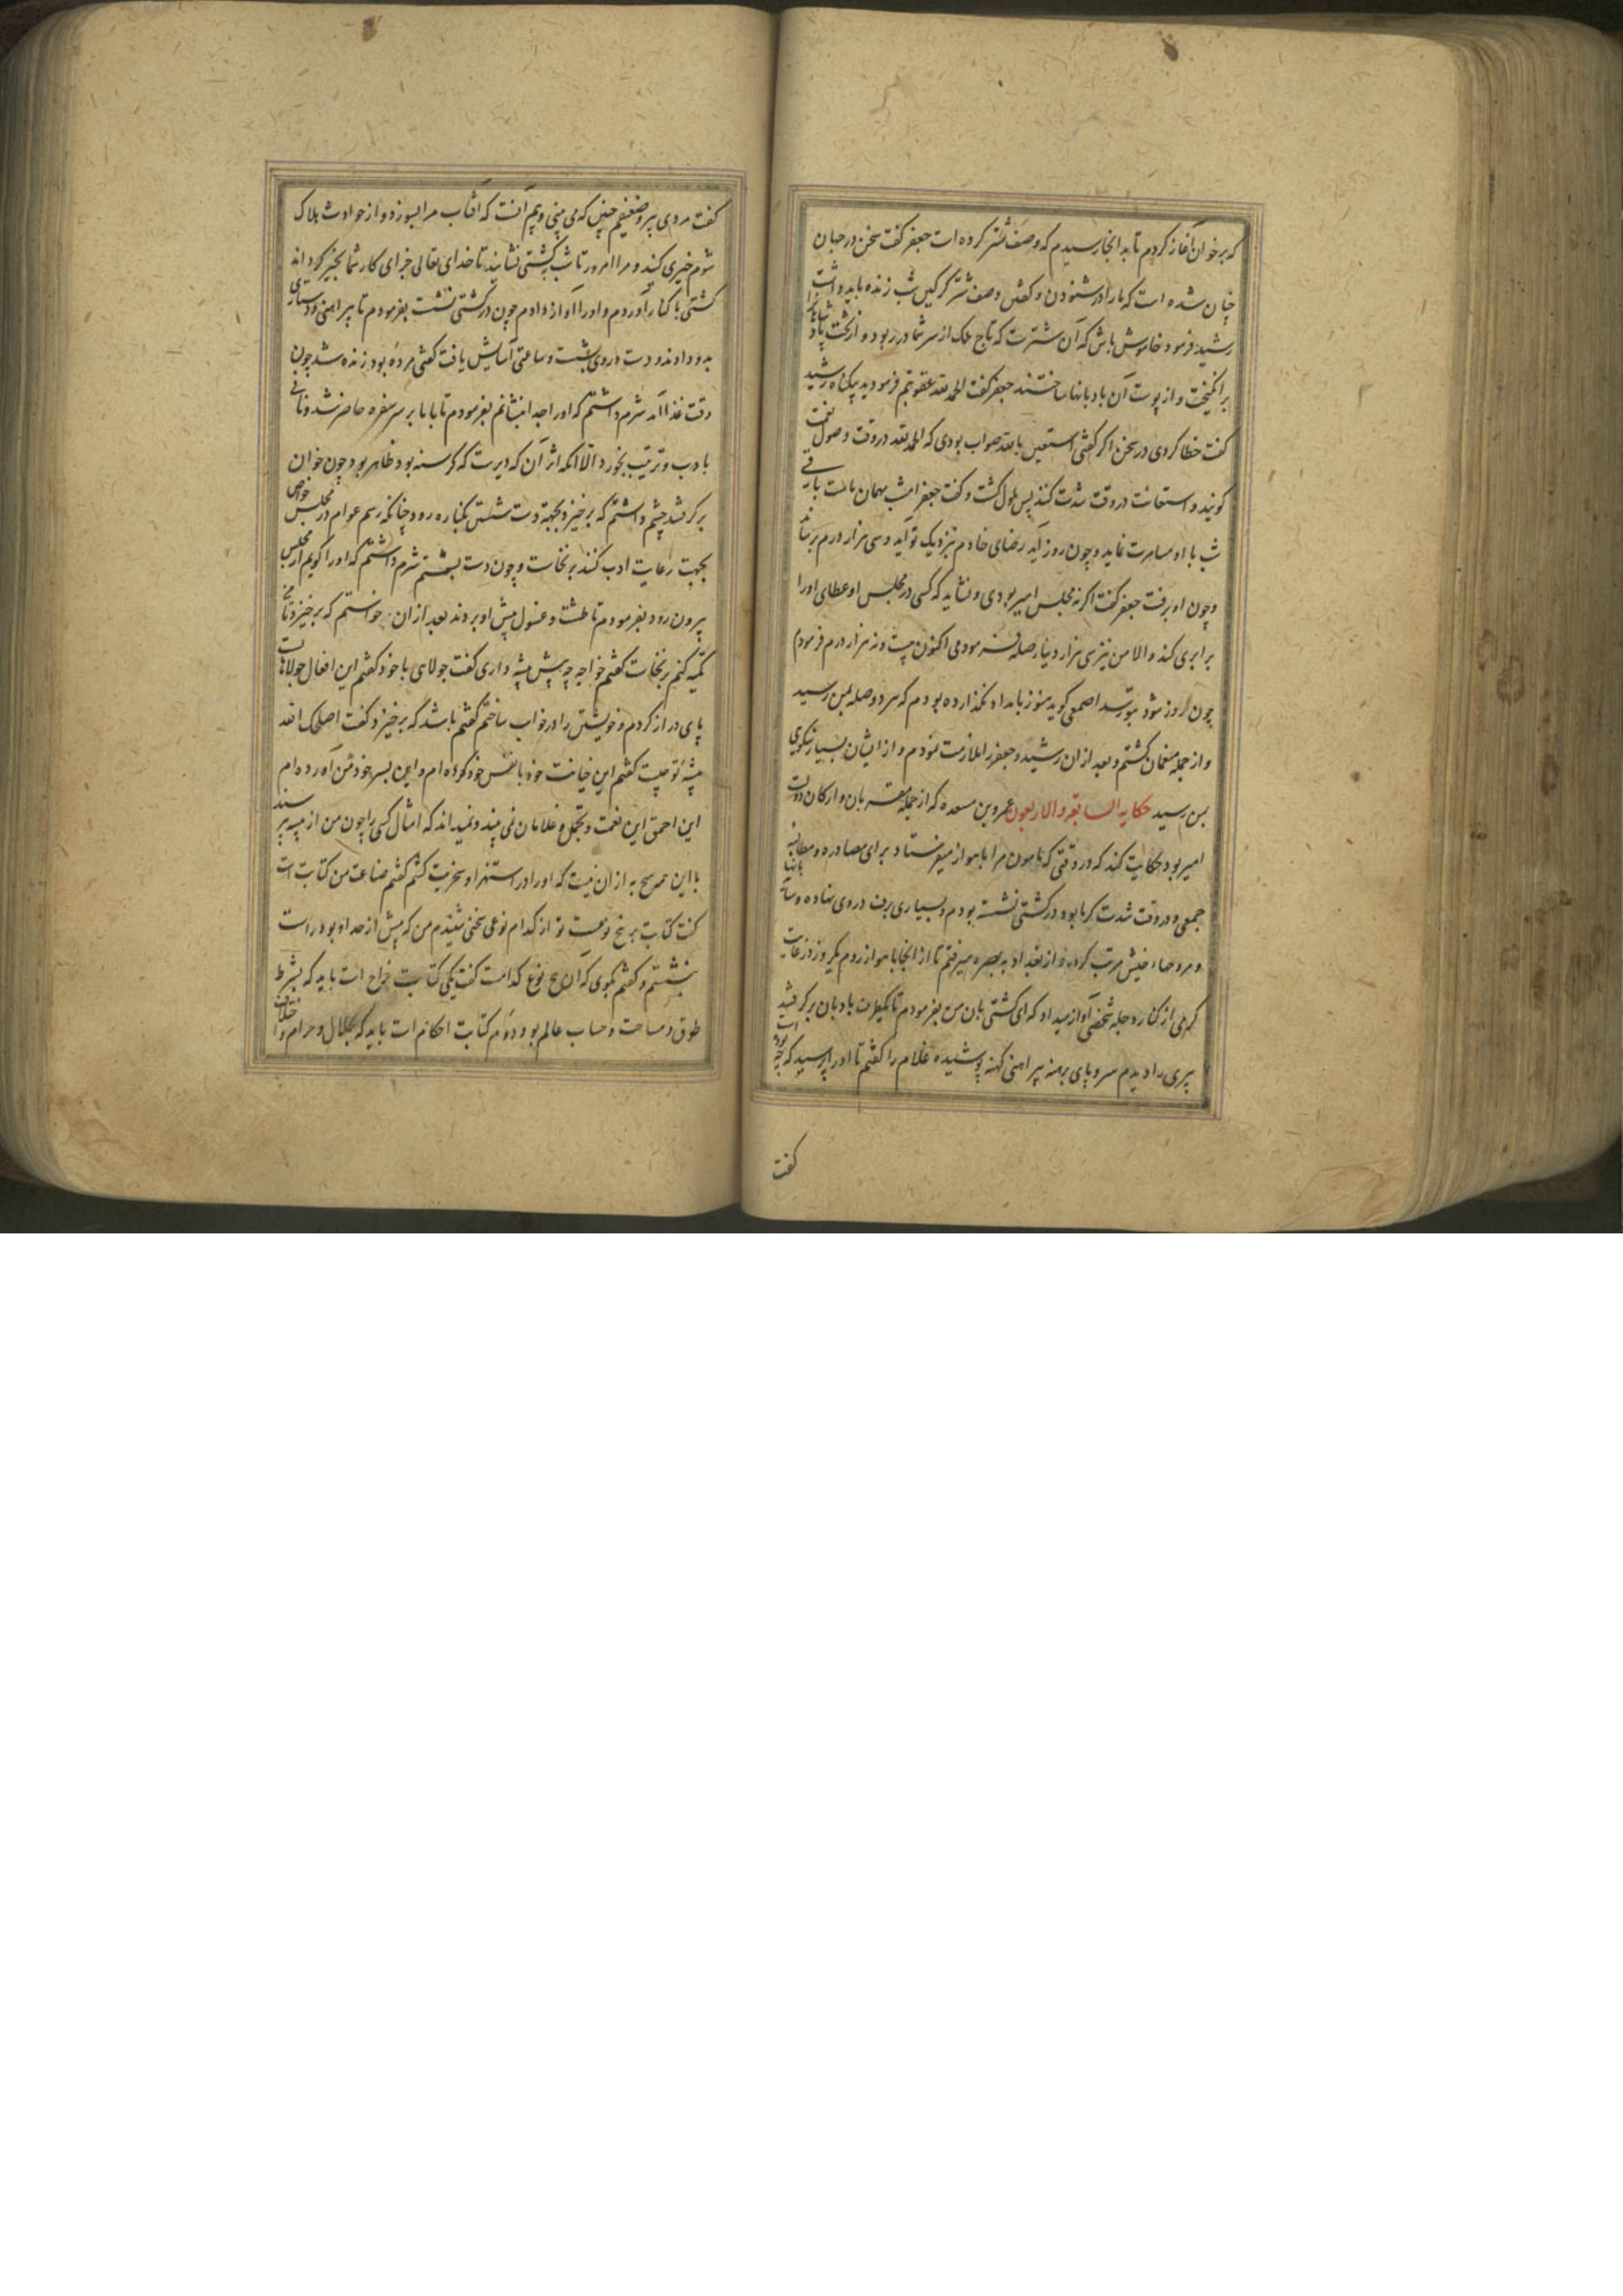 که برخوان آغاز کردم تا بد انجا رسیدم که وصف شتر کرده است جعفر گفت سخن در جهان
چنان شده است که ما را در شنودن و گفتن وصف شتر گرگین شب زنده باید داشت
رشید فرمود خاموش باش که آن شترست که تاج ملک از سر شما در ربود و از تخت پادشاهی
برانگیخت و از پوست آن بادبانها ساختند جعفر گفت الحمد لله عقوبتم فرمودید بیگناه رشید
گفت خطا کردی در سخن اگر گفتی استعین بالله صواب بودی که الحمد لله در وقت وصول نعمت
گویند و استعانت در وقت شدت کنند پس ملول گشت و گفت جعفر امشب مهمان ماست باقی
شب با او مسامرت نماید و چون روز آید رضای خادم بنزدیک تو آید و سی هزار درم برساند
و چون او برفت جعفر گفت اگر نه مجلس امیر بودی و نشاید که کسی در مجلس او عطای او را
برابری کند و الا من نیز سی هزار دینار صله فرمودمی اکنون بیست و نه هزار درم فرمودم
چون روز شود بتو رسد اصمعی گوید هنوز بامداد نگذارده بودم که هر دو صله بمن رسید
و از جمله منعمان گشتم و بعد از ان رشید و جعفر را ملازمت نمودم و از ایشان بسیار نیکویی
بمن رسید حکایه السابقه والاربعون عمرو بن مسعده که از جمله مقربان و ارکان دولت
امیر بود حکایت کند که در وقتی که مامون مرا باهواز میفرستاد برای مصادره و مطالبه
جمعی و در وقت شدت گرما بود در کشتی نشسته بودم و بسیاری برف در وی نهاده
و مروحهاء خیش مرتب کرده و از بغداد به بصره میرفتم تا از انجا باهواز روم یک روز در غایت
گرمی از کنار دجله شخصی آواز میداد که ای کشتی بان من بفرمودم تا یکطرف بادبان برگرفتند
پیری را دیدم سر و پای برهنه پیراهنی کهنه پوشیده غلام را گفتم تا او را پرسید که چه
گفت
گفت مردی پیر و ضعیفم چنین که می بینی و بیم آنست که آفتاب مرا بسوزد و از حوادث هلاک
شوم خیری کنید و مرا امروز تا شب بکشتی نشانید تا خدای تعالی جزای کار شما بخیر گرداند
کشتی با کنار آوردم و او را آواز دادم چون در کشتی نشست بفرمودم تا پیراهنی و دستاری
بدو دادند و دست و روی بشست و ساعتی آسایش یافت گفتی مرده بود زنده شد چون
وقت غذا آمد شرم داشتم که او را جدا بنشانم بفرمودم تا با ما بر سر سفره حاضر شد و نانی
بادب و ترتیب بخورد الا آنکه اثر آن که دیرست که گرسنه بود ظاهر بود چون خوان
برگرفتند چشم داشتم که برخیزد و بجهة دست شستن بکناره رود چنانکه رسم عوام در مجلس خواص
بجهت رعایت ادب کنند برنخاست و چون دست بشستم شرم داشتم که او را گویم از مجلس
بیرون رود بفرمودم تا طشت و غسول پیش او بردند بعد از ان خواستم که برخیزد تا من
تکیه کنم برنخاست گفتم خواجه چه پیشه داری گفت جولاهی با خود گفتم این افعال جولاهانست
پای دراز کردم و خویشتن را در خواب ساختم گفتم باشد که برخیزد گفت اصلحک الله
پیشه تو چیست گفتم این خیانت خود با نفس خود کرده ام و این بسر خود من آورده ام
این احمق این نعمت و تجمل و غلامان نمی بیند و نمیداند که امثال کسی را چون من از پیشه پرسند
با این همه هیچ به از ان نیست که او را در استهزا و سخریت کشم گفتم صناعت من کتابت است
گفت کتابت بر پنج نوعست تو از کدام نوعی سخنی شنیدم من که بیش از حد او بود راست
بنشستم و گفتم بگوی که آن پنج نوع کدامست گفت یکی کتابت خراج است باید که بشرط
طوق و مساحت و حساب عالم بود و دوم کتابت احکام است باید که بحلال و حرام و اختلاف